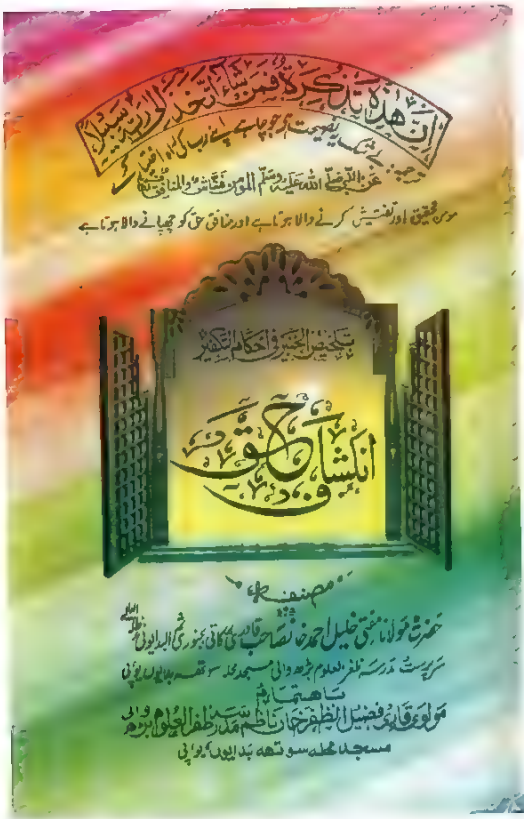 إِنَّ هَذِهِ تَذْكِرَةٌ فَمَنْ شَاءَ اتَّخَذَ إِلَىٰ رَبِّهِ سَبِيلًا
ترجمہ: بے شک یہ نصیحت ہے جو چاہے اپنے رب کی راہ اختیار کرے
عن النبی صلی اللہ علیہ وسلم المؤمن فتاش والمنافق
مومن تحقیق اور تفتیش کرنے والا ہوتا ہے اور منافق حق کو چھپانے والا ہوتا ہے
تلخیص الخبیر فی احکام التکفیر
انکشاف حق
مصنفہ
حضرت مولانا مفتی خلیل احمد خانصاحب قادری برکاتی بجنوری ثم البدایونی
سرپرست مدرسہ ظفر العلوم بڑھ والی مسجد محلہ سوتھہ بدایوں یو پی
باهتمام
مولوی قاری فضیل الظفر خان ناظم مدرسہ ظفر العلوم بڑھ والی
مسجد محلہ سوتھہ بدایوں یو پی